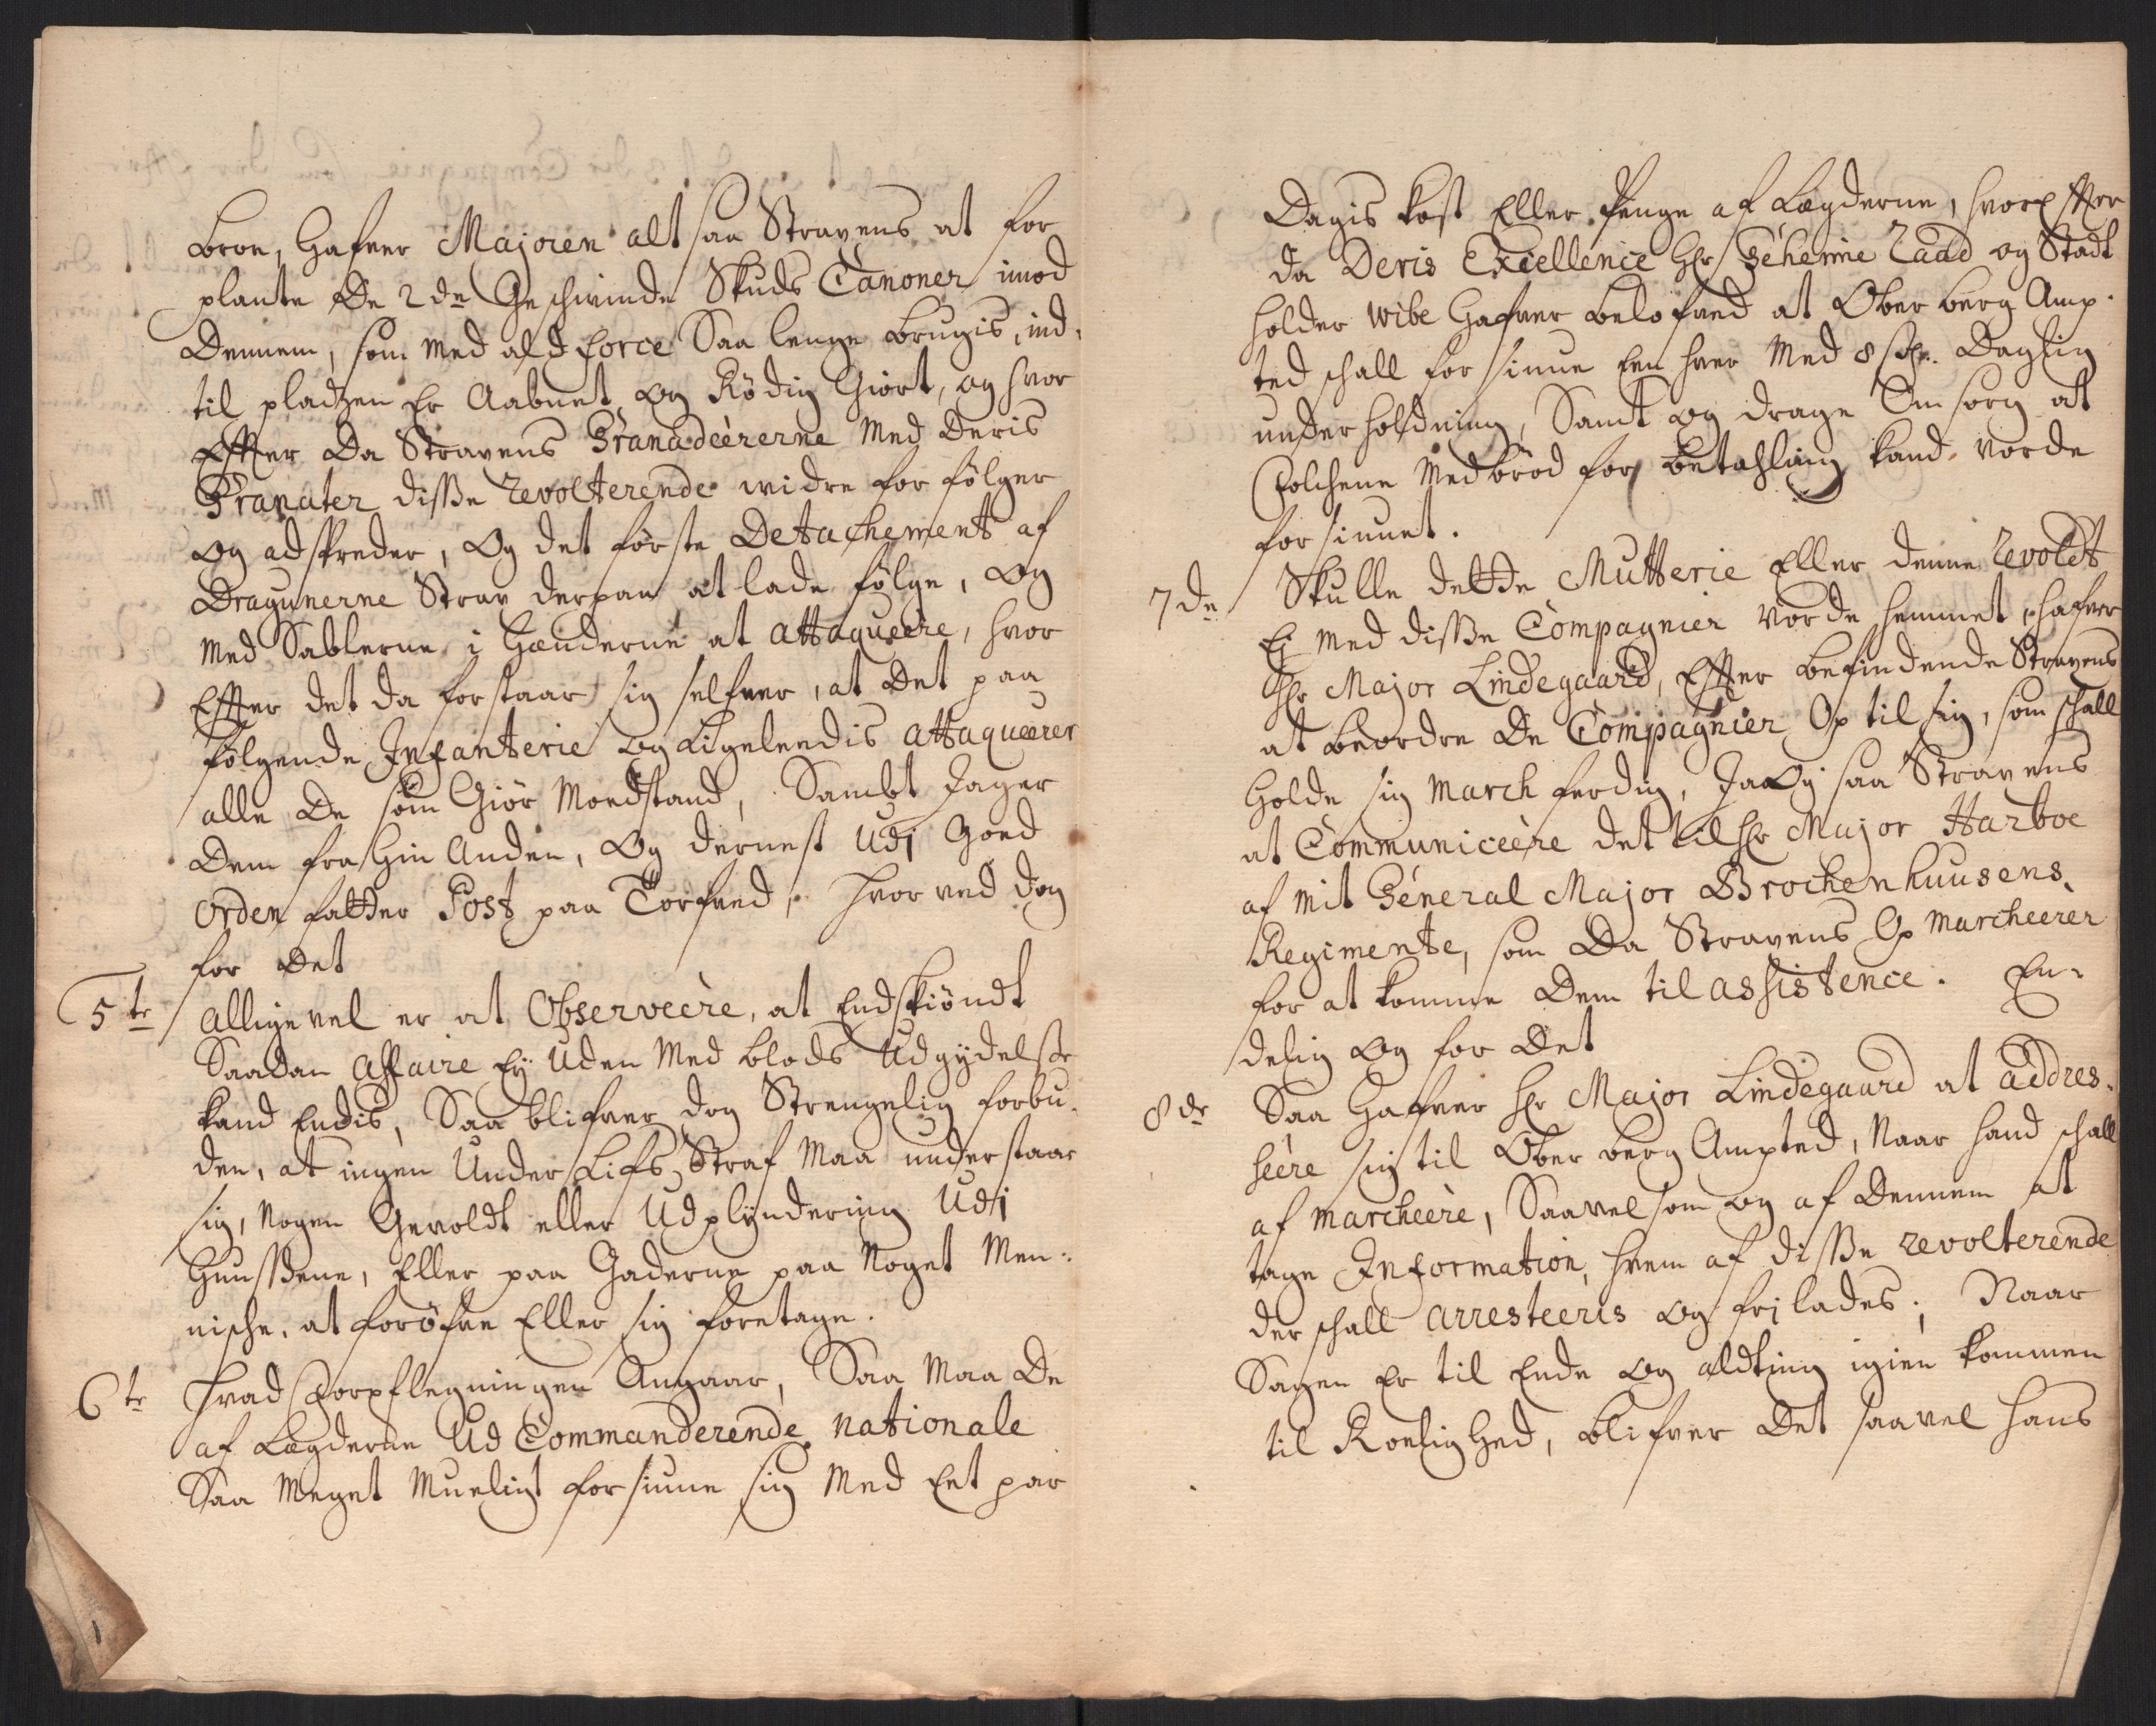 broe, Hafver Majoren alt saa Stravens at for
plante De 2de Geschwinde Skuds Canoner imod
Dennem, som med ald force Saa lenge brugis, ind,
til pladzen Er Aabnet og Rödig Giort, og hvor
Effter Da Stravens Granadeèrerne Med Deris
Granater disse revolterende widre for fölger
og adspreder, Og det förste Detachement af
Dragunerne Strax derpaa at lade fölge, og
med Sablerne i Hænderne at Attaqueère, hvor
Effter det da forstaar sig selfver, at Det paa
fölgende Infanterie og Ligeleedis Attaqueerer
alle De som Giör Modstand, Sambt Jager
Dem fra Hin Anden, Og dernest Udj Goed
Orden fatter Post paa Torfved, hvor ved dog
for Det
5te Alligevel er at Observeère, at Endskiöndt
Saadan Affaire Ey uden Med blods Udgydelsse
kand Endis, Saa blifver dog Strengelig forbu-
den, at ingen Under Lifs Straf Maa understaar
sig, Nogen Gevoldt eller Udplyndering Udi
Huussene, Eller paa Gaderne paa Noget Men-
nische, at foröfve Eller sig foretage.
6te Hvad Forpflegningen Angaar, Saa Maa De
af Lægderne Ud Commanderende Nationale
Saa Meget Mueligt forsiune sig Med Et par
Dagis kost Eller Penge af Lægderne, hvorefter
da Deris Excellence Hr Geheime Raad og Stadt
holder Wibe Hafver belofved at Ober Berg Amp-
ted schall forsiune En hver Med 8 sk. Daglig
underholdning, Samt og drage Omsorg at
Folchene Med bröd for betahling kand vorde
forsiunet.
7de Skulle dette Mutterie Eller denne revoldt
Ej med disse Compagnier vorde hemmet, hafver
Hr Major Lindegaard, Effter befindende Stravens
at beordre De Compagnier Op til sig, som schall
Holde sig March ferdig, Ja Og saa Stravens
at Communiceère det til Hr Major Harboe
af mit General Major Brochenhuusens
Regimente, som Da Stravens Op marcheerer
for at komme Dem til assistence. En-
delig og for Det
8de Saa Hafver Hr Major Lindegaard at addres-
seère sig til Ober berg Ampted, Naar hand schall
af marcheère, Saavelsom og af Dennem at
tage Information, hvem af disse revolterende
der schall arresteeris og frilades; Naar
Sagen Er til Ende og aldting igien kommen
til Roelighed, blifver Det saavel hans
1